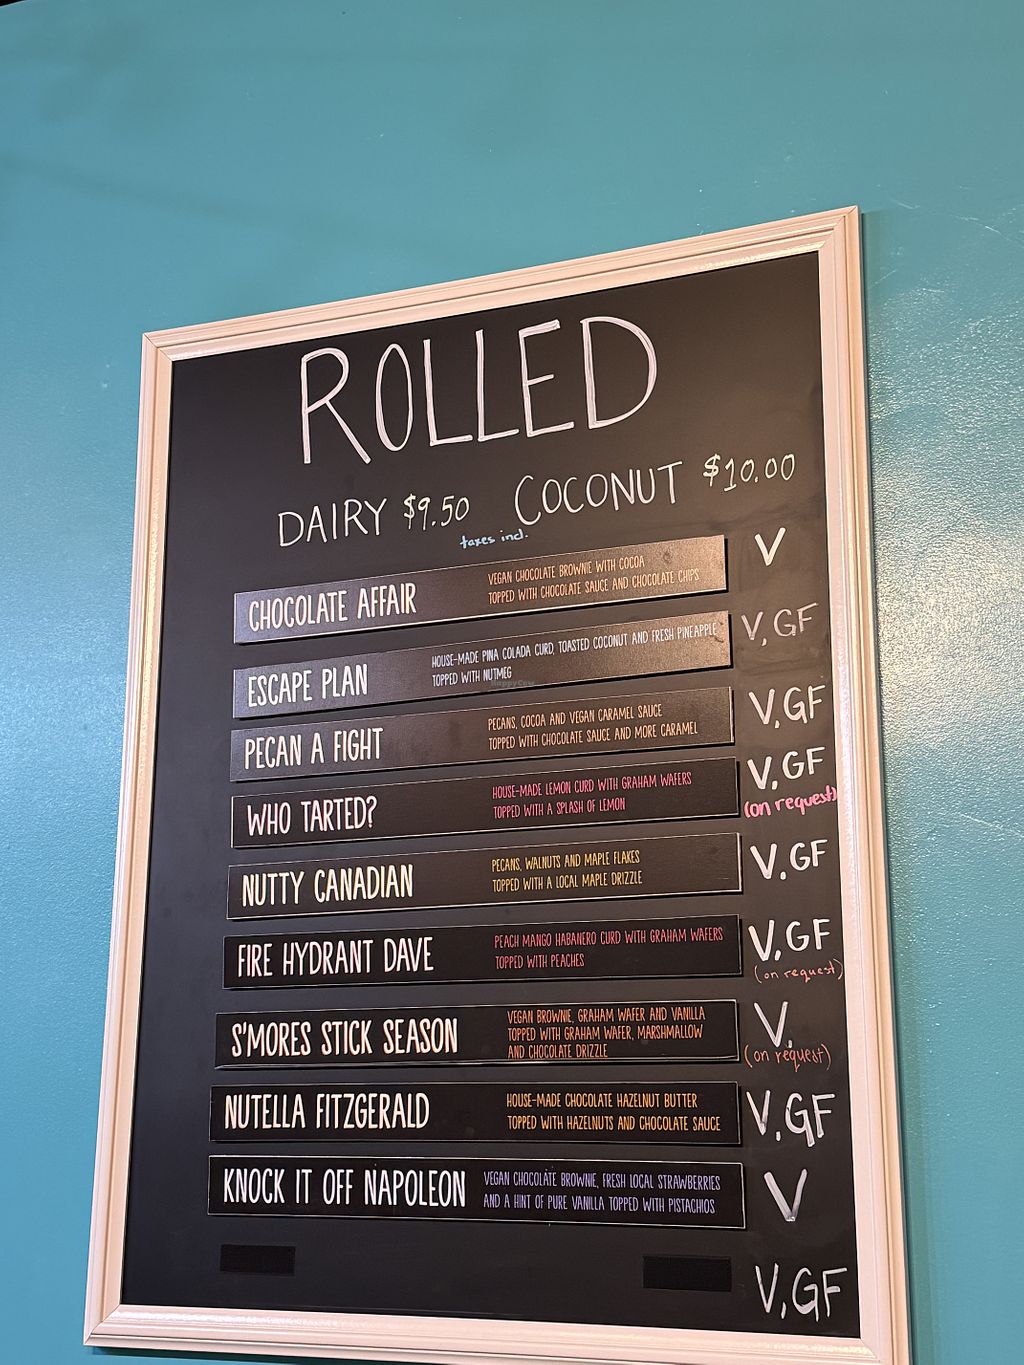 ROLLED
DAIRY $9.50 COCONUT $10.00
taxes incl.
CHOCOLATE AFFAIR
VEGAN CHOCOLATE BROWNIE WITH COCOA
TOPPED WITH CHOCOLATE SAUCE AND CHOCOLATE CHIPS
V
ESCAPE PLAN
HOUSE-MADE PINA COLADA CURD, TOASTED COCONUT AND FRESH PINEAPPLE
TOPPED WITH NUTMEG
V, GF
HappyCow
PECAN A FIGHT
PECANS, COCOA AND VEGAN CARAMEL SAUCE
TOPPED WITH CHOCOLATE SAUCE AND MORE CARAMEL
V, GF
WHO TARTED?
HOUSE-MADE LEMON CURD WITH GRAHAM WAFERS
TOPPED WITH A SPLASH OF LEMON
V, GF
(on request)
NUTTY CANADIAN
PECANS, WALNUTS AND MAPLE FLAKES
TOPPED WITH A LOCAL MAPLE DRIZZLE
V, GF
FIRE HYDRANT DAVE
PEACH MANGO HABANERO CURD WITH GRAHAM WAFERS
TOPPED WITH PEACHES
V, GF
(on request)
S'MORES STICK SEASON
VEGAN BROWNIE, GRAHAM WAFER AND VANILLA
TOPPED WITH GRAHAM WAFER, MARSHMALLOW
AND CHOCOLATE DRIZZLE
V.
(on request)
NUTELLA FITZGERALD
HOUSE-MADE CHOCOLATE HAZELNUT BUTTER
TOPPED WITH HAZELNUTS AND CHOCOLATE SAUCE
V, GF
KNOCK IT OFF NAPOLEON
VEGAN CHOCOLATE BROWNIE, FRESH LOCAL STRAWBERRIES
AND A HINT OF PURE VANILLA TOPPED WITH PISTACHIOS
V
V, GF